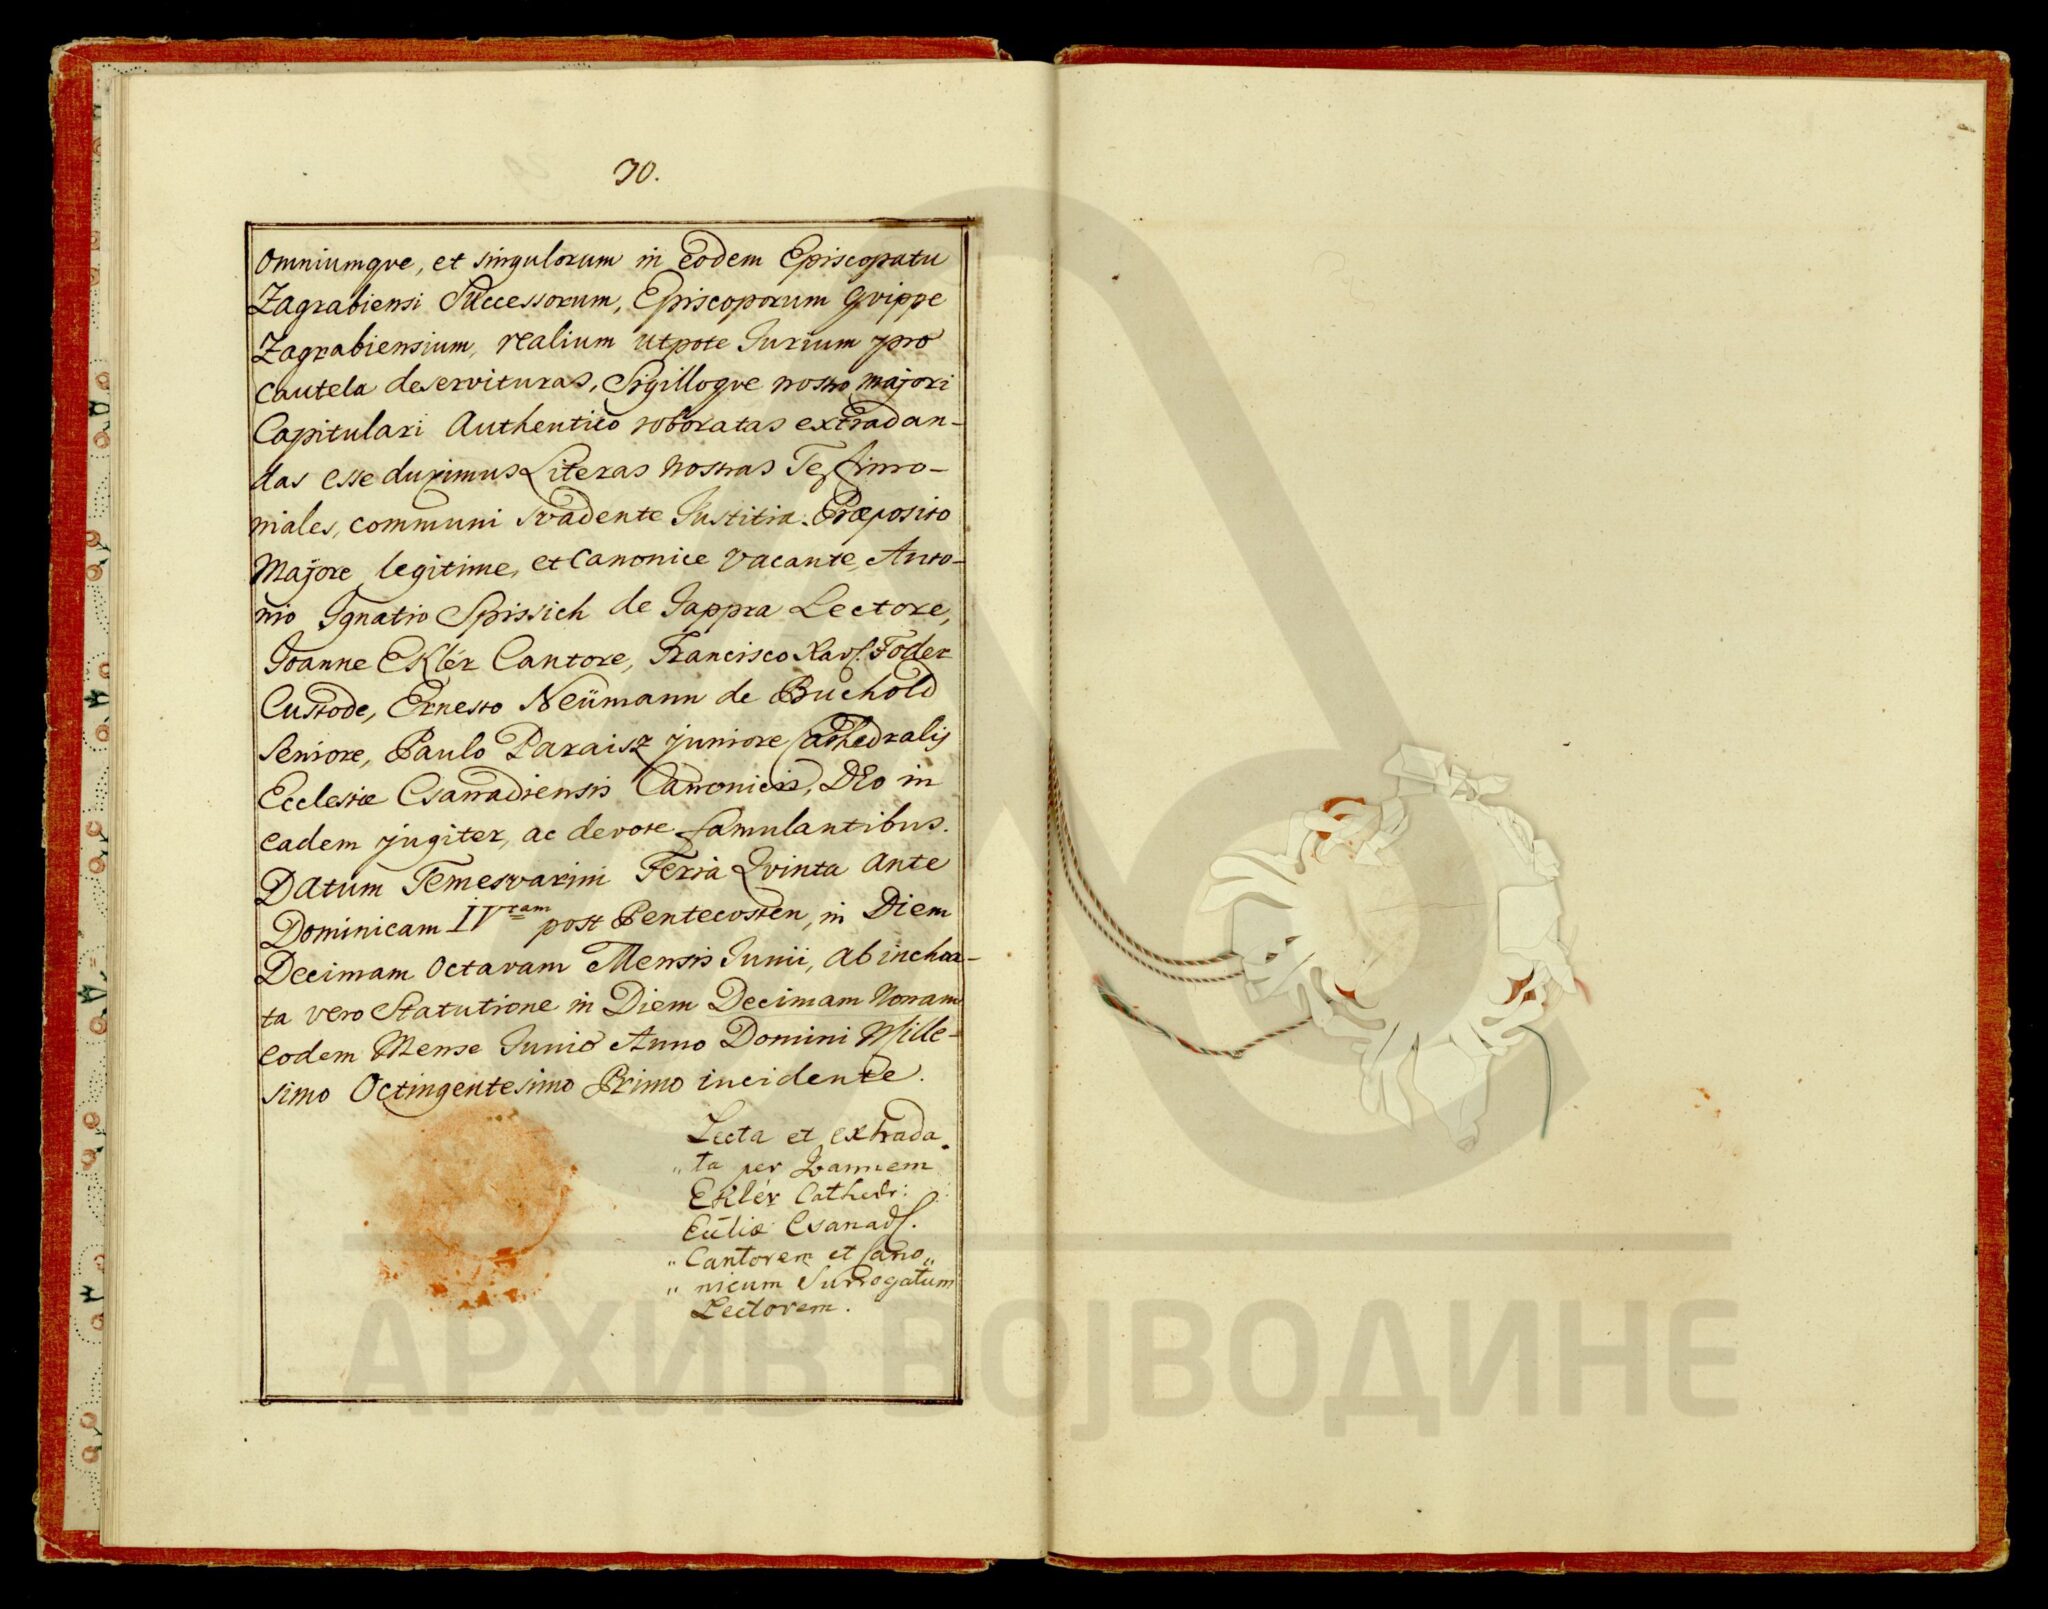 70.
omniumqve, et singulorum in Eodem Episcopatu
Zagrabiensi Successorum, Episcoporum qvippe
Zagrabiensium, realium utpote Jurium pro
cautela deservituras, Sigilloqve nostro majori
Capitulari Authentico roboratas extradan-
das esse duximus Literas nostras Testimo-
niales, communi Svadente Justitia. Præposito
Majore legitime, et Canonice vacante, Anto-
nio Ignatio Spissich de Jappra Lectore,
Joanne Eklér Cantore, Francisco Xav. Foder
Custode, Ernesto Neümann de Buchold
Seniore, Paulo Paraisz juniore Cathedralis
Ecclesiæ Csanadiensis Canonicis, DEo in
eadem jugiter, ac devote famulantibus.
Datum Temesvarini Feria Qvinta ante
Dominicam IVtam post Pentecosten, in Diem
Decimam Octavam Mensis Junii, ab inchoa-
ta vero Statutione in Diem Decimam Nonam
eodem Mense Junio Anno Domini Mille-
simo Octingentesimo Primo incidente.
Lecta et extrada
„ ta per Joannem
Eklér Cathedr:
Eccliæ Csanad.
„ Cantorem et Cano„
„ nicum Surrogatum
Lectorem.
АРХИВ ВОЈВОДИНЕ